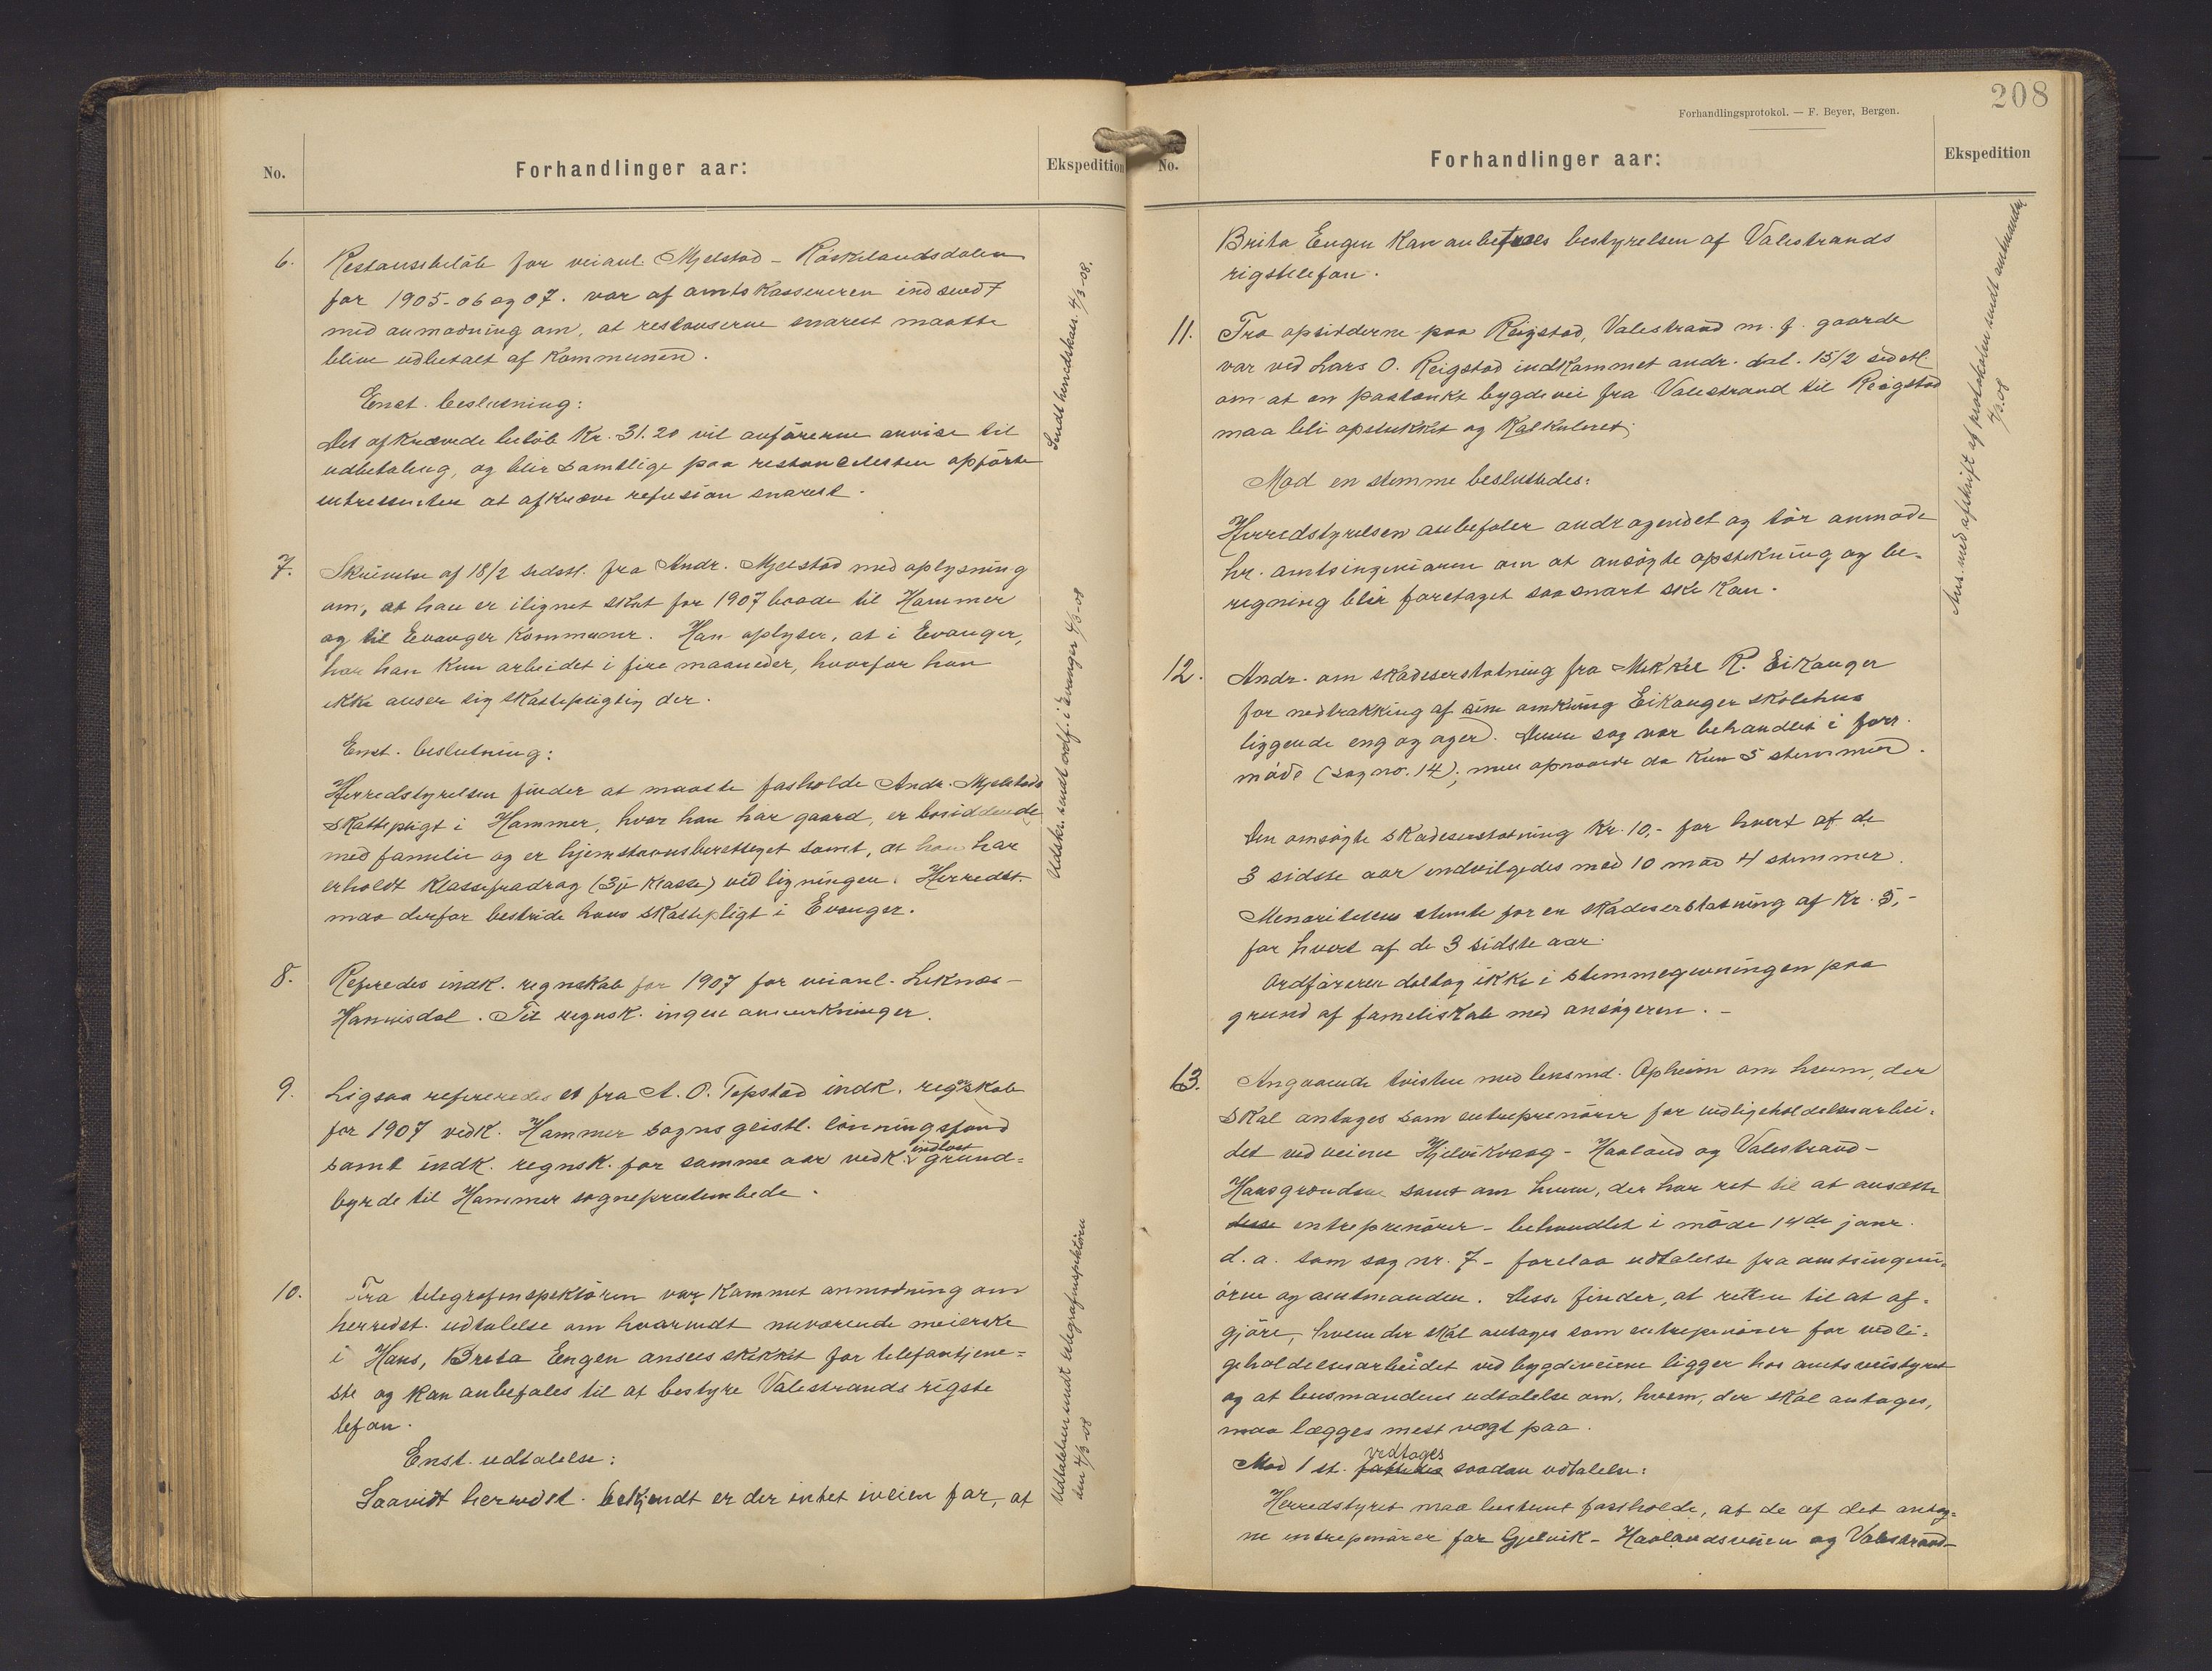 No.
Forhandlinger aar:
Ekspedition
6.
Restansebeløb for veianl. Mjelstad - Röskelandsdalen
for 1905-06 og 07. var af amtskassereren indsendt
med anmodning om, at restanserne snarest maatte
blive udbetalt af kommunen.
Enst. beslutning:
Det afkrævede beløb kr. 31.20 vil anføreren anvise til
udbetaling, og blir samtlige paa restancelisten opførte
intressenter at afkræve refusion snarest.
Sendt herredskass. 4/3-08.
7.
Skrivelse af 18/2 sidstl. fra Andr. Mjelstad med oplysning
om, at han er ilignet skat for 1907 baade til Hammer
og til Evanger kommuner. Han oplyser, at i Evanger,
har han kun arbeidet i fire maaneder, hvorfor han
ikke anser sig skattepligtig der.
Enst. beslutning:
Herredstyrelsen finder at maatte fasholde Andr. Mjelstads
skattepligt i Hammer, hvor han har gaard, er bosiddende
med familie og er hjemstavnsberettiget samt, at han har
erholdt klassefradrag (3je klasse) ved ligningen. Herredst.
maa derfor bestride hans skattepligt i Evanger.
Udskr. sendt ordf. i Evanger 4/3-08
8.
Refiredes indk. regnskab for 1907 for veianl. Leknes-
Hannisdal. Til regnsk. ingen anmerkninger.
9.
Ligsaa refereredes et fra A. O. Tepstad indk. regnskab
for 1907 vedk. Hammer sogns geistl. lønningsfond
samt indk. regnsk. for samme aar vedk. indløst grund=
byrde til Hammer sogneprestembede.
10.
Fra telegrafinspektøren var kommet anmodning om
herredst. udtalelse om hvorvidt nuværende meierske
i Haus, Brita Engen ansees skikket for telefontjene=
ste og kan anbefales til at bestyre Valestrands rigste
lefon.
Enst. udtalelse:
Saavidt herredst. bekjendt er der intet iveien for, at
Udtalelsen sendt telegrafinspektøren
den 4/3-08
208
Forhandlingsprotokol. — F. Beyer, Bergen.
No.
Forhandlinger aar:
Ekspedition
Brita Engen kan anbetroes bestyrelsen af Valestrands
rigstelefon.
11.
Fra opsidderne paa Reigstad, Valestrand m. fl. gaarde
var ved Lars O. Reigstad indkommet andr. dat. 15/2 sidstl.
om at en paatænkt bygdevei fra Valestrand til Reigstad
maa bli opstukket og kalkuleret.
Mod en stemme besluttedes:
Herredstyrelsen anbefaler andragendet og tør anmode
hr. amtsingeniøren om at ansøgte opstikning og be-
regning blir foretaget saasnart ske kan.
Ans. med afskrift af protokolen sendt amtmanden
4/3.08
12.
Andr. om skadeserstatning fra Mikkel R. Eikanger
for nedtrakking af sin omkring Eikanger skolehus
liggende eng og ager. Denne sag var behandlet i forr.
møde (sag no. 14), men opnaaede da kun 5 stemmer.
Den omsøgte skadeserstatning kr. 10,- for hvert af de
3 sidste aar indvilgedes med 10 mod 4 stemmer.
Menoriteten stemte for en skadeserstatning af kr. 5,-
for hvert af de 3 sidste aar.
Ordføreren deltog ikke i stemmegivningen paa
grund af familiskab med ansøgeren. -
13.
Angaaende tvisten med lensmd. Opheim om hvem, der
skal antages som entreprenører for vedligeholdelsesarbei-
det ved veiene Hjelvikvaag - Haaland og Valestrand-
Hausgrændsen samt om hvem, der har ret til at ansætte
disse entreprenører - behandlet i møde 14de janr.
d. a. som sag nr. 7 - forelaa udtalelse fra amtsingeni-
øren og amtmanden. Disse finder, at retten til at af-
gjøre, hvem der skal antages som entreprenører for vedli-
geholdelsesarbeidet ved bygdeveiene ligger hos amtsveistyret
og at lensmandens udtalelse om, hvem, der skal antages,
maa lægges mest vægt paa.
Mod 1 st. fattedes vedtoges saadan udtalelse:
Herredstyret maa bestemt fastholde, at de af det antag-
ne entreprenører for Gjelvik - Haalandsveien og Valestrand-